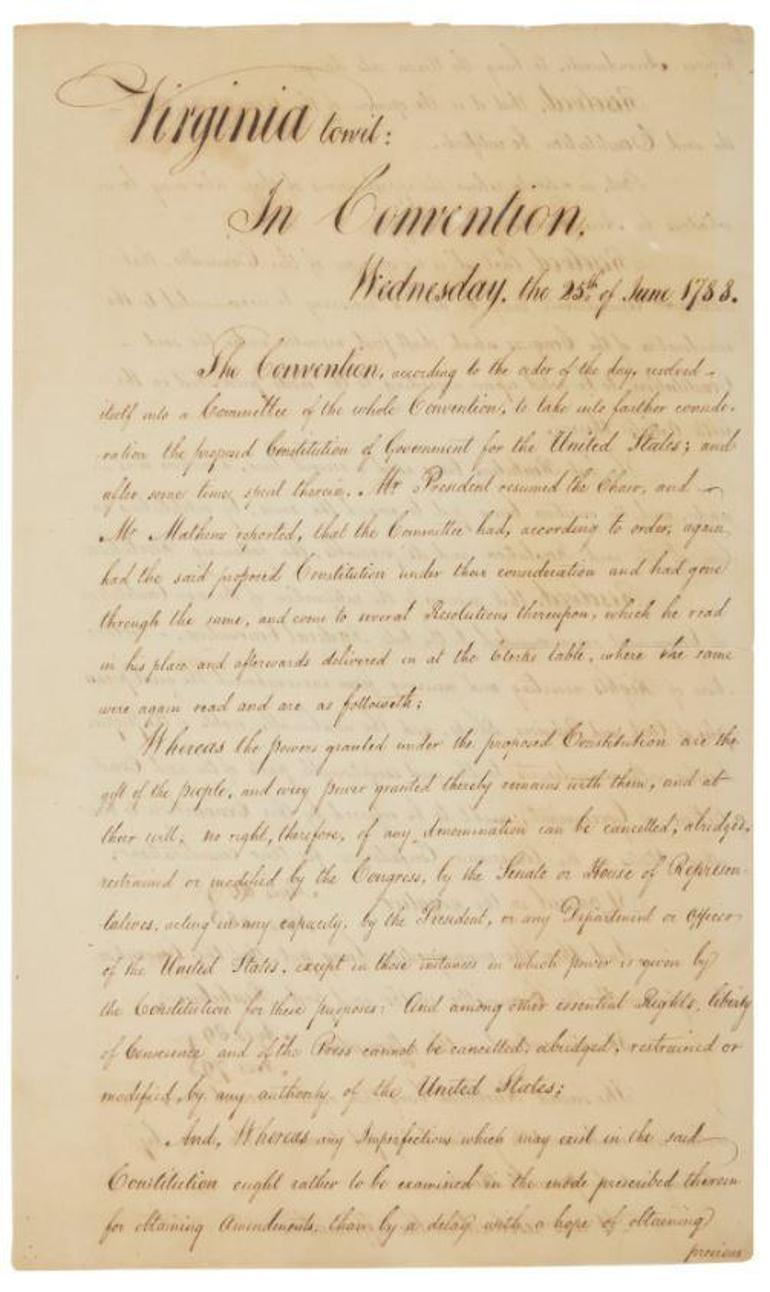 Virginia towit:
In Convention,
Wednesday, the 25th of June 1788.
The Convention, according to the order of the day, resolved
itself into a Committee of the whole Convention, to take into farther conside-
ration the proposed Constitution of Government for the United States; and
after some time spent therein, Mr President resumed the Chair, and
Mr Mathews reported, that the Committee had, according to order, again
had the said proposed Constitution under their consideration and had gone
through the same, and come to several Resolutions thereupon, which he read
in his place and afterwards delivered in at the Clerks table, where the same
were again read and are as followeth:
Whereas the powers granted under the proposed Constitution are the
gift of the people, and every power granted thereby remains with them, and at
their will; no right, therefore, of any denomination can be cancelled, abridged,
restrained or modified by the Congress, by the Senate or House of Represen-
tatives, acting in any capacity, by the President, or any Department or Officer
of the United States, except in those instances in which power is given by
the Constitution for these purposes: And among other essential Rights, liberty
of Conscience and of the Press cannot be cancelled, abridged, restrained or
modified, by any authority of the United States;
And, Whereas any Imperfections which may exist in the said
Constitution ought rather to be examined in the mode prescribed therein
for obtaining Amendments, than by a delay with a hope of obtaining
previous